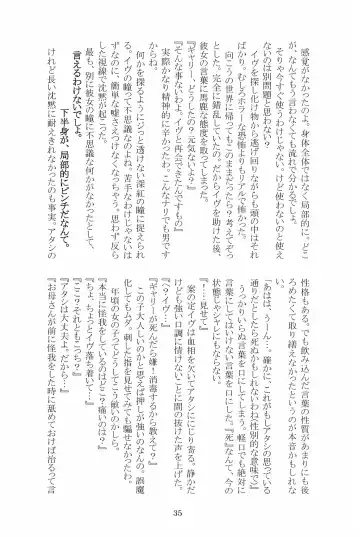 感覚がなかったのよ。身体全体ではなく局部的に。どこ
が、なんてもう言わなくても流れでわかるでしょ。
そりゃ今すぐ使うわけじゃない、けど使わないのと使え
ないのは別問題と思わない？
イヴを探し化け物から逃げ回りながらも頭の中はそれ
ばかり。むしろホラーな恐怖よりもリアルで怖かった。
向こうの世界に帰ってもこのままだったら？考えてぞっ
とした。完全に錯乱していたの。だからイヴを助けた後、
彼女の言葉に馬鹿な態度を取ってしまった。
『ギャリー、どうしたの？元気ないよ？』
『そんな事ないわよ。イヴと再会できたんですもの』
実際かなり精神的に辛かったわ。こんなナリでも男です
からね。
何かを探るようにジッと透けない深紅の瞳に捉えられ
る。イヴの瞳って不思議なのよね。苦手なわけじゃないは
ずなのに、簡単な嘘さえつけなくなっちゃう。思わず反ら
した視線で沈黙が起こった。
最も、別に彼女の瞳に不思議な何かがなかったとして、
言えるわけないでしょ。
下半身が、局部的にピンチだなんて。
けれど長い沈黙に耐えきれなかったのも事実。アタシの
性格もある。でも飲み込んだ言葉の性質があまりにも後
ろめたくて取り繕えなかったというのが本音かもしれな
い。
『あはは、うーん…、確かに、これがもしアタシの思っている
通りだとしたら死ぬかもしれないわね（性別的な意味で）』
うっかりいらぬ言葉を口にしてしまう。軽口でも絶対に
言葉にしてはいけない言葉を口にした。『死』なんて、今の
状態じゃシャレにもならない。
『…！見せて』
案の定イヴは血相を欠いてアタシににじり寄る。静かだ
けども強い口調に情けないことに間の抜けた声を上げた。
『へ？イヴ…』
『ギャリーが死んだら嫌。消毒するから教えて』
この子大人しいのかと思えば押しが強いのなんの。誤魔
化してもムダ。刺した指を見せてみても騙せなかったわ。
年頃の女の子ってどうしてこう鋭いのかしら。
『本当に怪我をしているのはどこ？痛いのは？』
『ちょ、ちょっとイヴ落ち着いて…』
『ここ？それともこっち？』
『アタシは大丈夫よ。だから…』
『お母さんが前に怪我をした時に舐めておけば治るって言
35